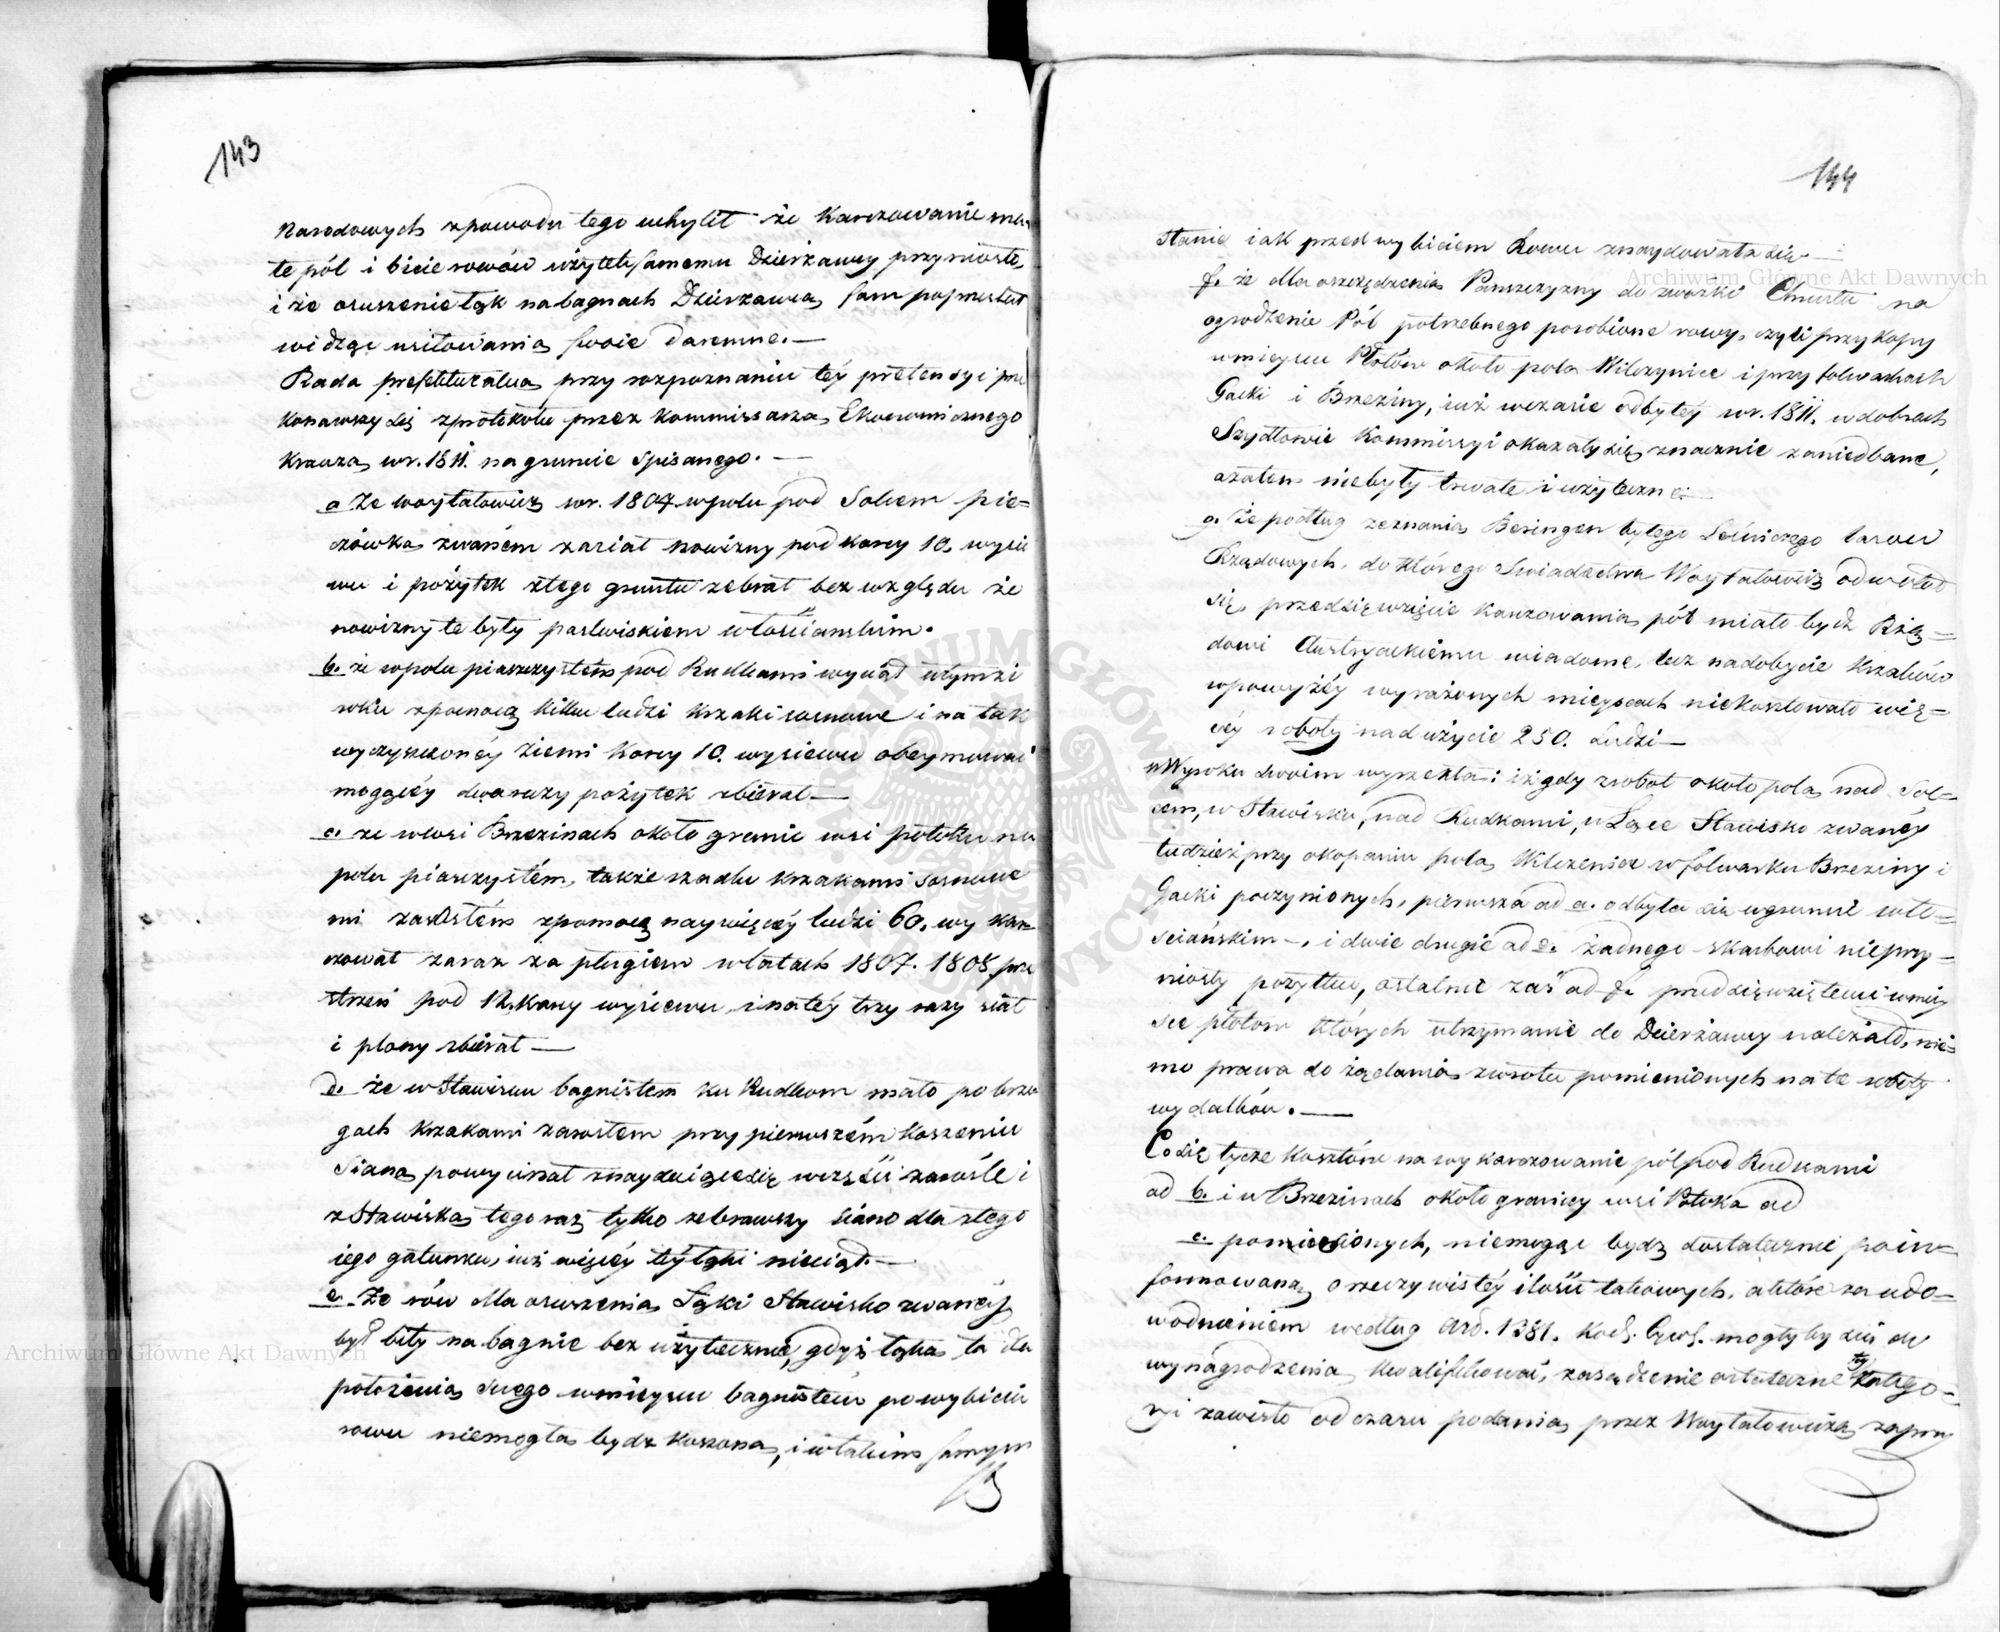 143
Narodowych zpowodu tego uchylił że Karczowanie ma
te pól i bicie rowów użytek samemu Dzierżawcy przyniosło,
i że osuszenie łąk na bagnach Dzierżawca sam poprzestał
widząc usiłowania swoie daremne.—
Rada prefekturalna przy rozpoznaniu téy pretensyi prze
konawszy się zprotokołu przez Kommissarza Ekonomicznego
Krauza w r. 1811. na gruncie spisanego.—
a Że Woytałowicz w r. 1807. w polu pod Solcem pie=
czówka zwaném zasiał nowizny pod korcy 10. wysie
wu i pożytek ztego gruntu zebrał bez względu że
nowizny te były pastwiskiem włościańskim.
b. że w polu piasczystem pod Rudkami wyciął w tymże
wku zpomocą kilku ludzi krzaki sosnowe i na tak
wyczyszczonéy ziemi korcy 10. wysiewu obeymować
mogącéy dwa razy pożytek zbierał—
c. że w wsi Brzezinach około granic wsi potoku na
polu piasczystém, także rzadko krzakami sosnowe
mi zarosłém zpomocą naywięcéy ludzi 60. wy kar=
czował zaraz za pługiem w latach 1807. 1808. prze
strzeń pod 12. korcy wysiewu i na téy trzy razy siał
i plony zbierał—
d. że w Stawisku bagnistem ku Rudkom mało po brze
gach krzakami zarosłem przy pierwszém koszeniu
Siana powycinał znayduiące się w części zarośle i
z Stawiska tego raz tylko zebrawszy siano dla złego
iego gatunku, iuż więcéy téy łąki nie ciął.—
e. Że rów dla osuszenia Łąki Stawisko zwanéy
był bity na bagnie bez użytecznie, gdyż łąka ta dla
położenia swego w mieyscu bagnistém po wybiciu
rowu niemogła bydz koszona, i w takim samym
144
stanie iak przed wybiciem Rowu znaydowała się.—
f. że dla oszczędzenia Pańszczyzny do zwozki Chrustu na
ogrodzenie Pól potrzebnego porobione rowy, czyli przykopy
w mieyscu Płotów około pola Wilczyniec i przy folwarkach
Gacki i Brzeziny, iuż w czasie odbytéy w r. 1811. w dobrach
Szydłowie Kommissyi okazały się znacznie zaniedbane,
a zatem niebyły trwałe i użyteczne.—
g. że podług zeznania Beringen byłego Leśniczego lasów
Rządowych, do którego Swiadectwa Woytałowicz odwołał
się, przedsięwzięcie karczowania pól miało bydź Rzą=
dowi Austryackiemu wiadome, lecz na dobycie krzaków
w powyżéy wyrażonych mieyscach niekosztowało wię=
céy roboty nad użycie 250. Ludzi—
w Wyroku swoim wyrzekła: iż gdy z robot około pola nad Sol=
cem, w Stawisku, nad Rudkami, w Łące Stawisko zwanéy
tudzież przy okopaniu pola Wilczeniec w folwarku Brzeziny i
Gacki poczynionych, pierwsza ad a. odbyła się w gruncie wło=
ściańskim—, i dwie drugie ad e. żadnego skarbowi nieprzy=
niosły pożytku, ostatnie zaś ad f. przedsięwzięte w miey
sce płotow których utrzymanie do Dzierżawcy należało, nie=
ma prawa do żądania zwrotu pomienionych na te roboty
wydatków.—
Co się tycze kosztów na wykarczowanie pól pod Rudkami
ad b. i w Brzezinach około granicy wsi Potoka ad
c. pomienionych, niemogąc bydz dostatecznie poin=
formowaną o rzeczywistéy ilości takowych, a które za udo=
wodnieniem według Art. 1381. Kod. Cyw. mogłyby się do
wynagrodzenia kwalifikować, zasądzenie ostateczne téy katego=
ryi zawisło od czasu podania przez Woytałowicza zapew